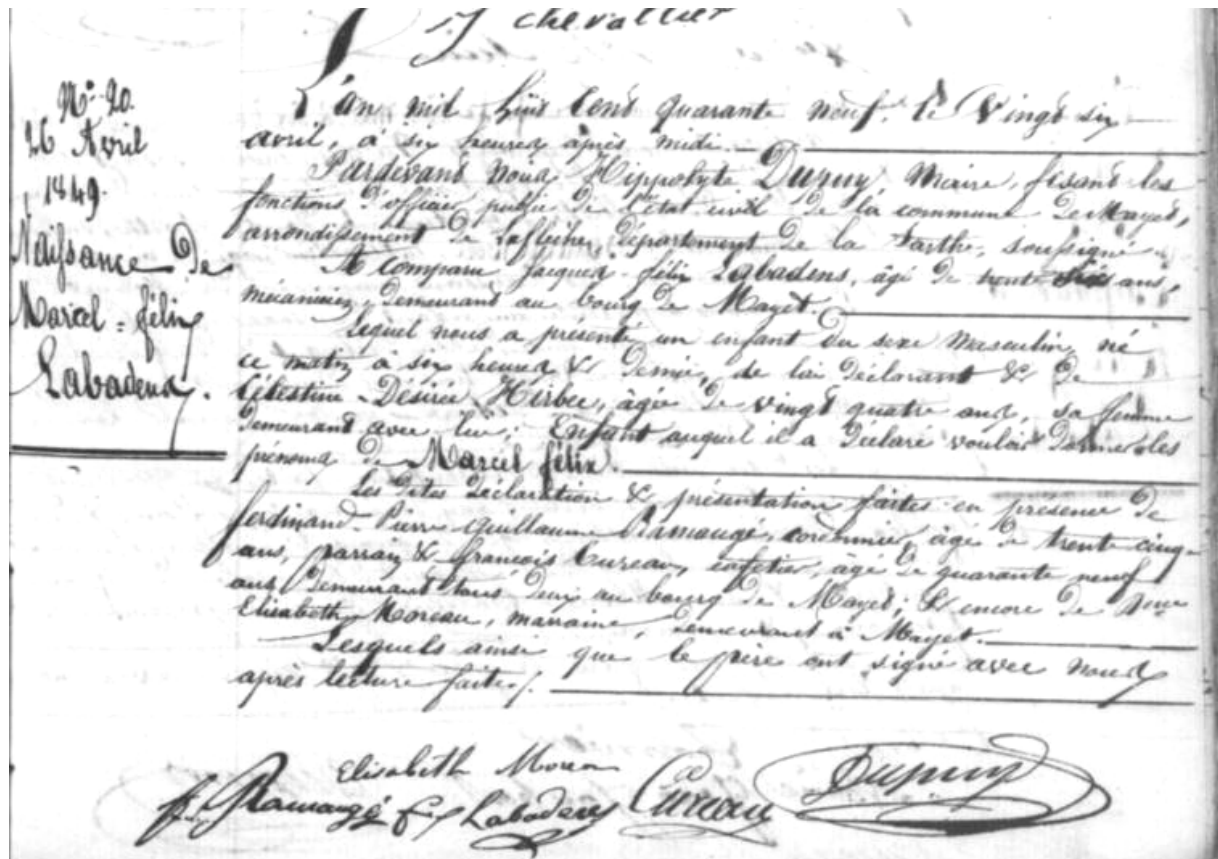 chevallier
N° 20.
26 Avril
1849.
Naissance de
Marcel = félix
Labadens.
L'an mil huit Cent quarante neuf. le Vingt six
avril, à six heures après midi.
Pardevant Nous Hippolyte Dupuy, Maire, fesant les
fonctions d'officier public de l'état civil de la commune de Mayet,
arrondissement de Laflèche, département de la Sarthe, soussigné
A Comparu Jacques félix Labadens, âgé de trente ans,
mécanicien, demeurant au bourg de Mayet.
Lequel nous a présenté un enfant du sexe Masculin, né
ce matin à six heures & demie, de lui déclarant & de
Célestine Désirée Hirbec, âgée de vingt quatre ans, sa femme
demeurant avec lui; Enfant auquel il a déclaré vouloir donner les
prénoms de Marcel félix.
Les dites déclaration & présentation faites en présence de
ferdinand Pierre Guillaume Ramaugé, cordonnier, âgé de trente cinq
ans, parrain & françois Cureau, cafetier, âgé de quarante neuf
ans, demeurant tous deux au bourg de Mayet; & encore de
Elisabeth Moreau, marraine, demeurant à Mayet.
Lesquels ainsi que le père ont signé avec nous
après lecture faite.
Elisabeth Moreau
f. Ramaugé Labadens Cureau Dupuy